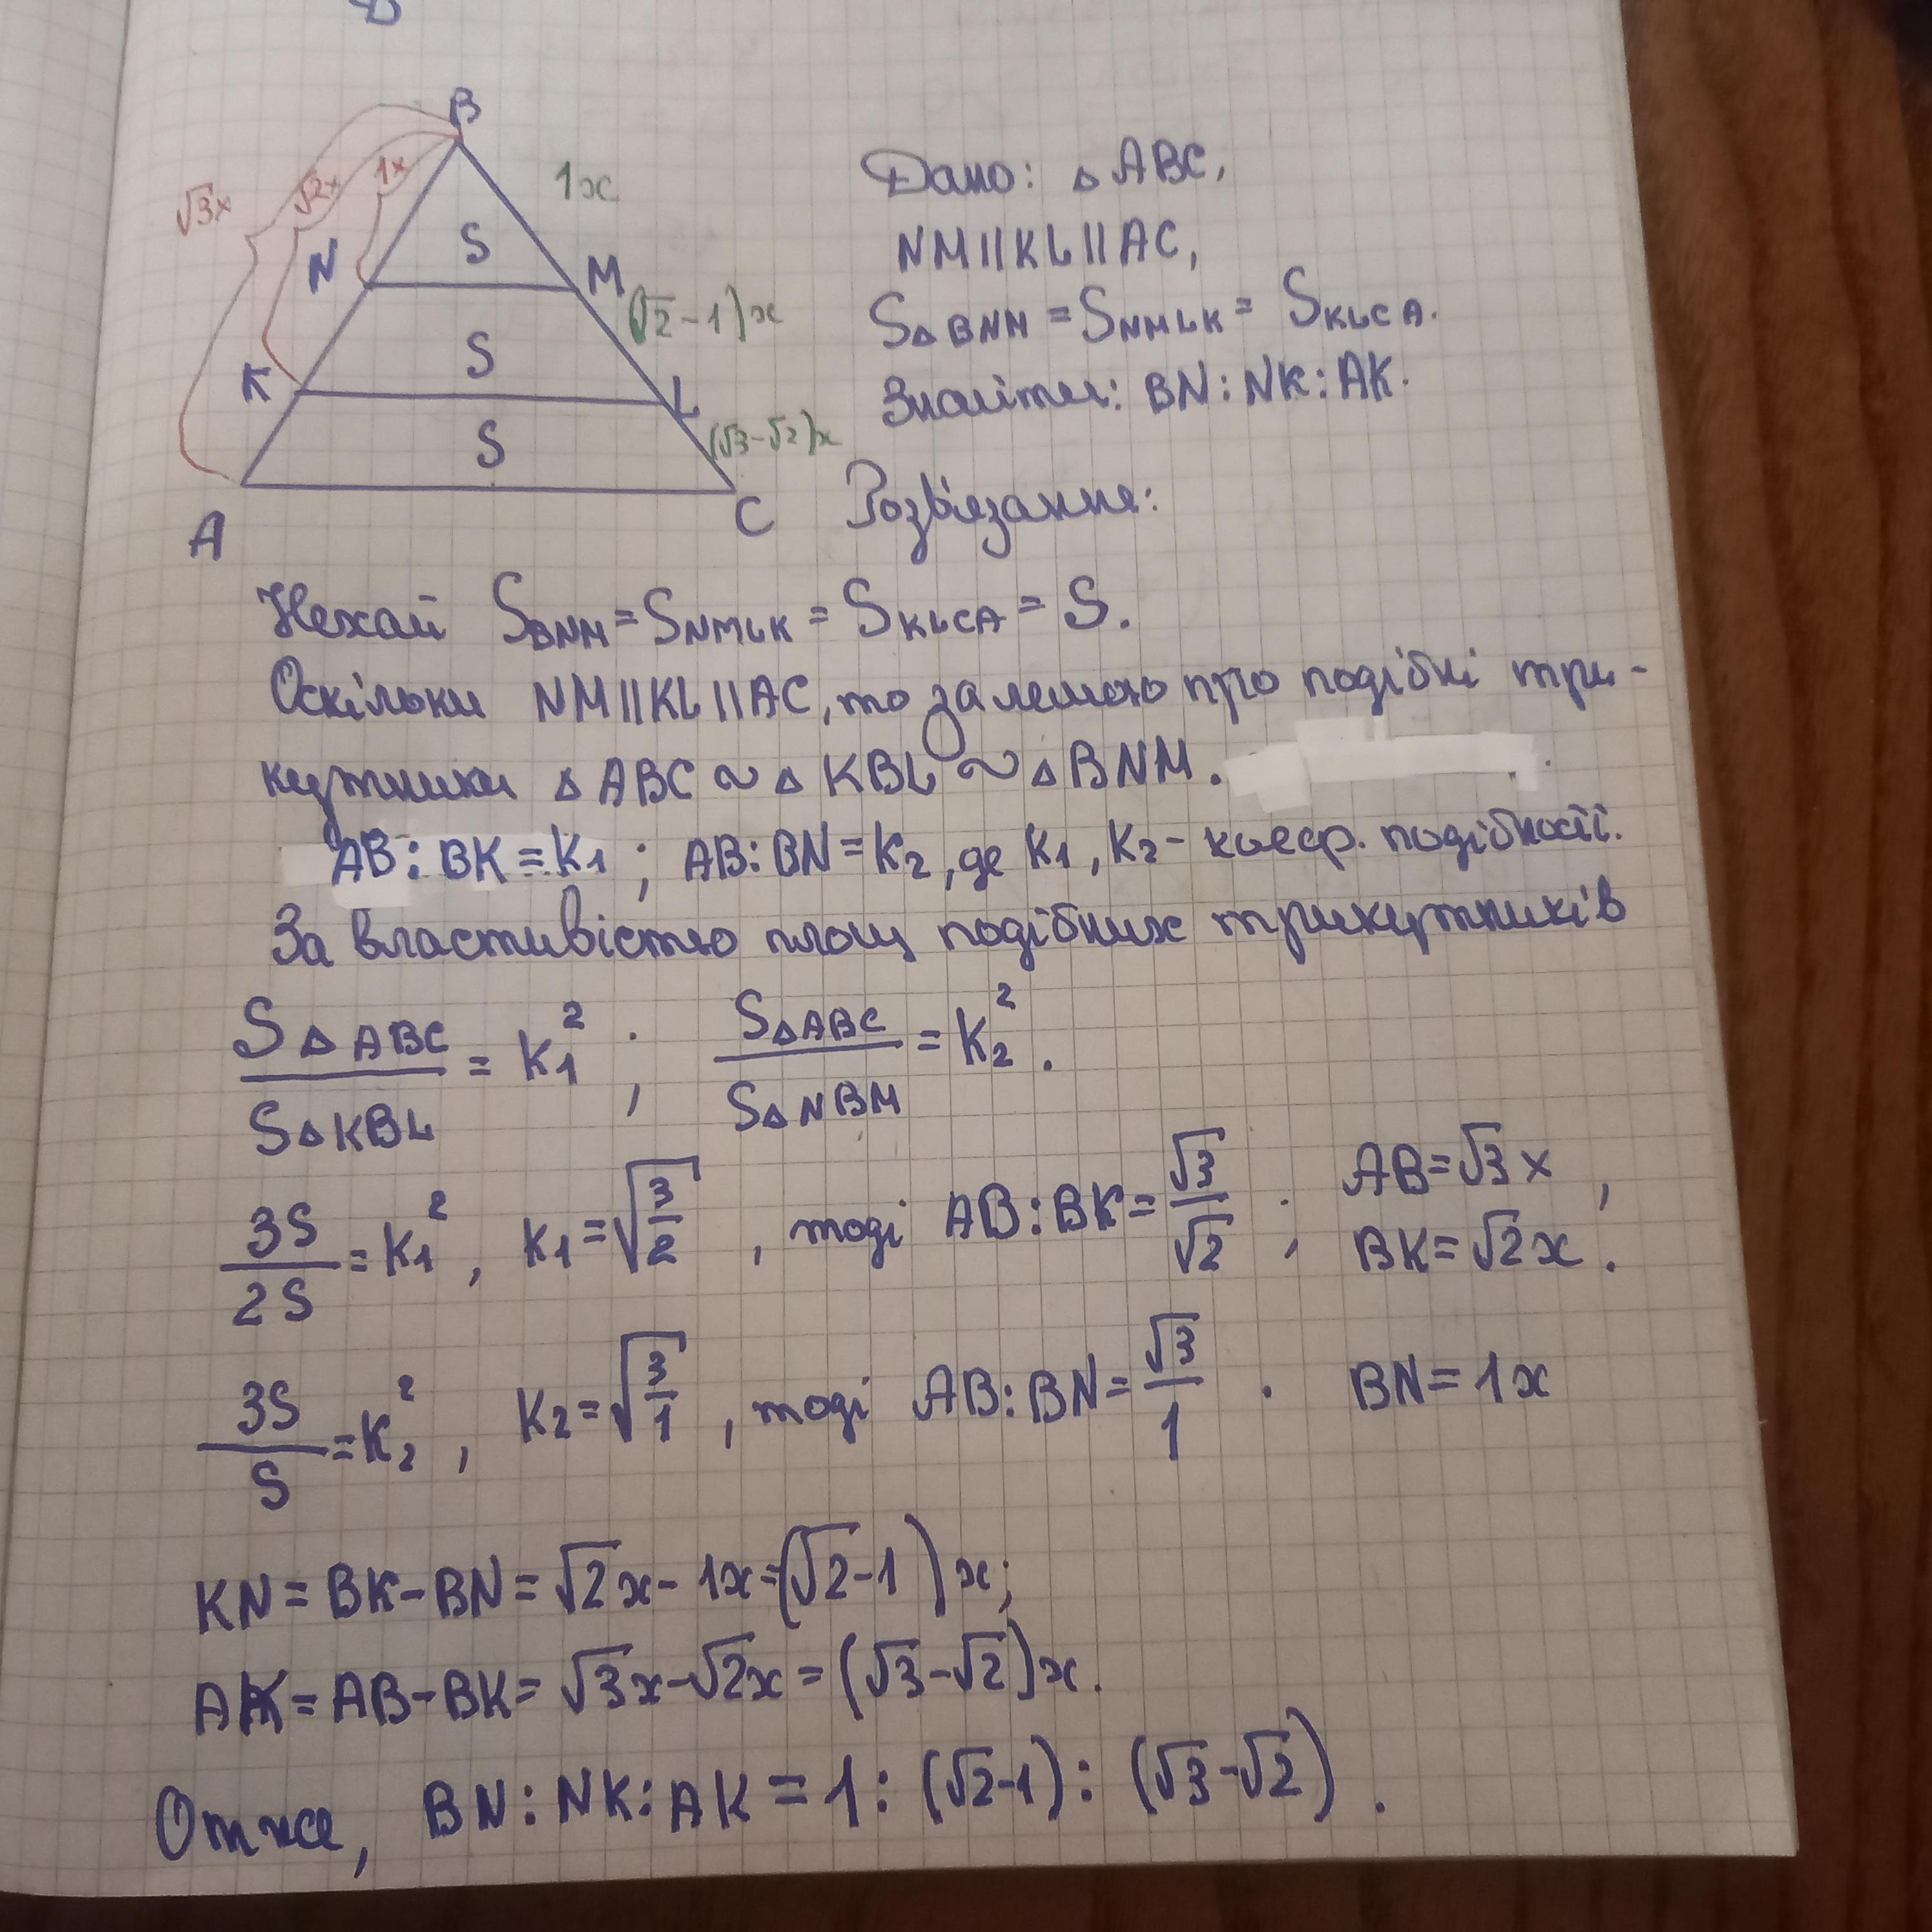 B
√3x
√2x
1x
1x
S
N
M
(√2-1)x
S
K
L
(√3-√2)x
S
A
C
Дано: △ABC,
NM||KL||AC,
S△BNM = SNMLK = SKLCA.
Знайти: BN:NK:AK.
Розв'язання:
Нехай SBNM = SNMLK = SKLCA = S.
Оскільки NM||KL||AC, то за лемою про подібні три-
кутники △ABC ~ △KBL ~ △BNM.
AB:BK=K1; AB:BN=K2, де K1, K2 - коеф. подібності.
За властивістю площ подібних трикутників
S△ABC/S△KBL = K1²; S△ABC/S△NBM = K2².
3S/2S = K1², K1=√(3/2), тоді AB:BK=√3/√2; AB=√3x, BK=√2x.
3S/S = K2², K2=√(3/1), тоді AB:BN=√3/1. BN=1x
KN=BK-BN=√2x-1x=(√2-1)x;
AK=AB-BK=√3x-√2x=(√3-√2)x.
Отже, BN:NK:AK=1:(√2-1):(√3-√2).